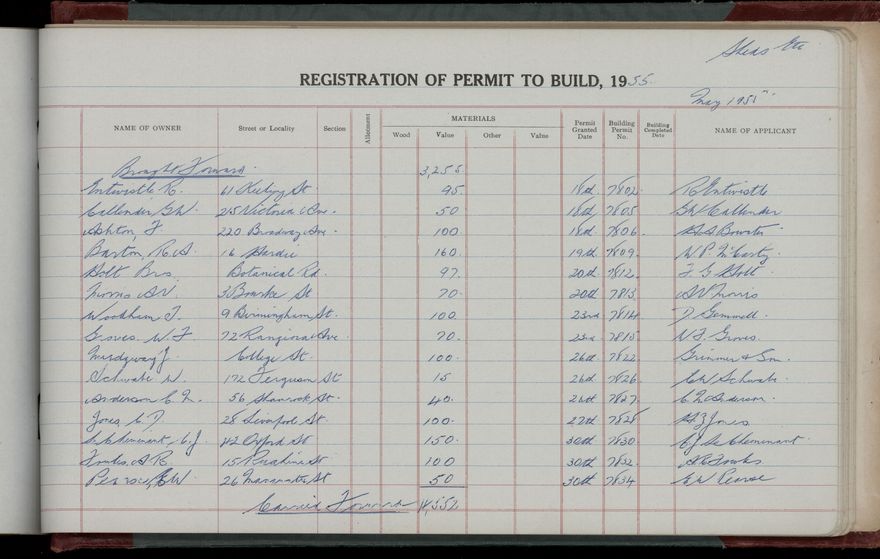 Sheds Etc
REGISTRATION OF PERMIT TO BUILD, 1955.
May 1955
NAME OF OWNER Street or Locality Section Allotment MATERIALS Wood Value Other Value Permit Granted Date Building Permit No. Building Completed Date NAME OF APPLICANT
Brought Forward. 3,255
Entwistle R. 61 Keeling St 95 18th 7802 R Entwistle
Callender GW. 215 Victoria Ave. 50 18th 7805 GW Callender
Ashton, F 220 Broadway Ave. 100 18th 7806 Bowater
Barton, R.A. 16 Hardie 160. 19th 7809. W.P. McCarty.
Holt Bros, Botanical Rd. 97. 20th 7812. F. G Holt
Morris AV. 3 Bourke St 70. 20th 7813 AV Morris
Woodham T. 9 Birmingham St. 100 23rd 7814 D Gemmell.
Groves. W.F 72 Rangiora Ave. 70. 23rd 7815 W.F. Groves.
J. College St. 100. 26th 7822 Grimmer & Son.
Schwabe W. 172 Ferguson St 15 26th 7826. Schwabe.
Anderson C.N. 56 Shamrock St. 40. 26th 7827 C N Anderson.
Jones, C.D. 28 Liverpool St. 100. 27th 7828 Jones
Le Cheminant, C.J. 42 Oxford St 150. 30th 7830 CJ Le Cheminant.
Fowks, A R. 15 Ruahine St 100 30th 7832. Fowks
Pearse, E W 26 Manawatu St 50 30th 7834 E W Pearse
Carried Forward 4,552